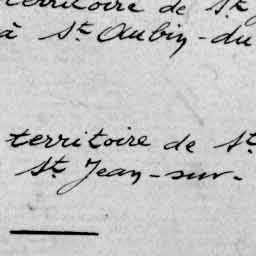 territoire de St
à St Aubin-du
territoire de St
St Jean-sur-